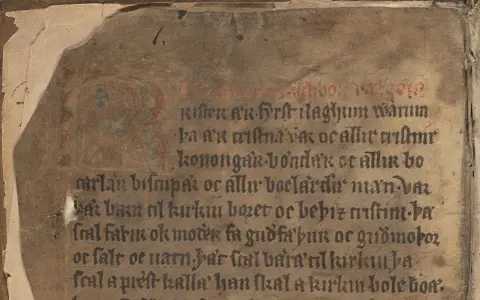 Krister ær fyrst i laghum warum
þa ær cristna var oc allir cristnir
konongær. bøndær oc allir bo
carlar biscupar oc allir boclærdir mæn. Var
þær barn til kirkiu boret oc beþiz cristnu. þa
scal faþir ok moþer fa guðfæþur oc guðmoþor
oc salt oc uatn. þæt scal bæra til kirkiu þa
scal a prest kallæ han skal a kirkiu bole boa.